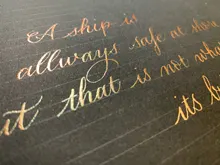 A ship is
allways safe at shore
but that is not what
its bu